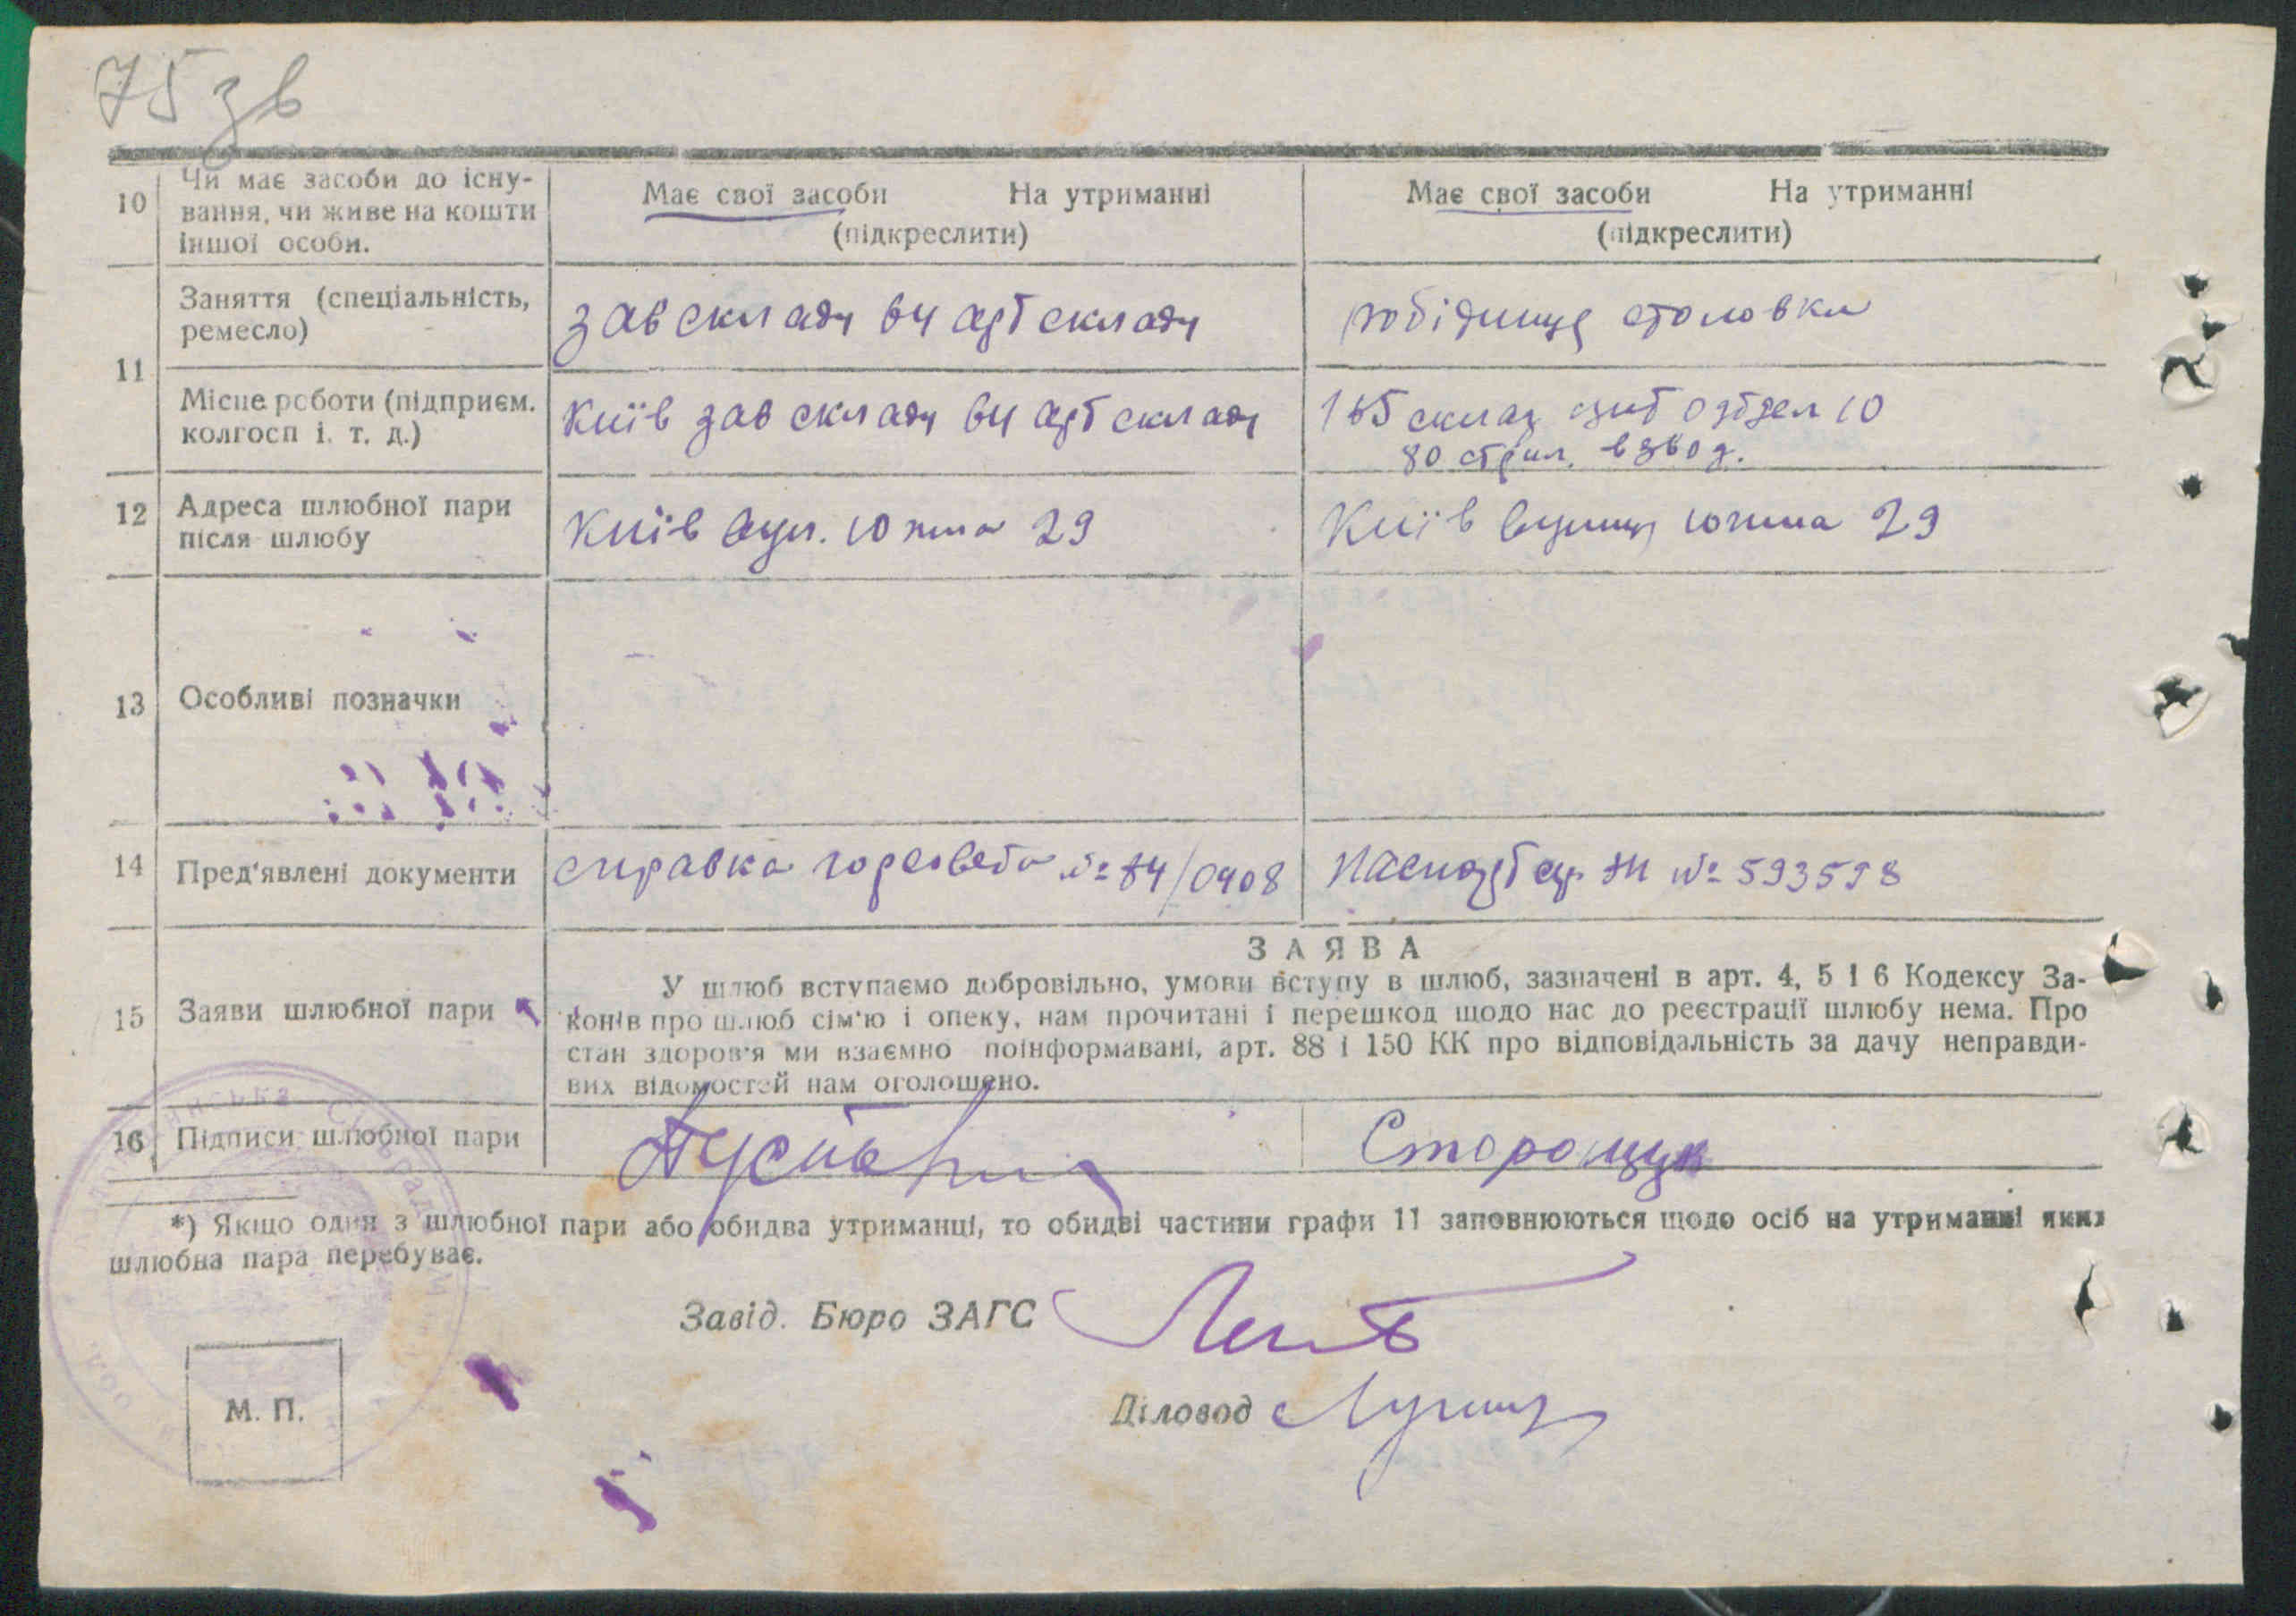 75 зв
10 Чи має засоби до існу-
вання, чи живе на кошти
іншої особи.
Має свої засоби На утриманні
(підкреслити)
Має свої засоби На утриманні
(підкреслити)
11
Заняття (спеціальність,
ремесло)
зав складу 64 арт складу
робідниця столовки
Місце роботи (підприєм.
колгосп і. т. д.)
Київ зав складу 64 арт складу
165 склад 10
80 стрил. взвод.
12 Адреса шлюбної пари
після шлюбу
Київ вул. Южна 29
Київ вулиця Южна 29
13 Особливі позначки
14 Пред'явлені документи
справка горсовета № 84/0408
Паспорт сер. № 593598
15 Заяви шлюбної пари
ЗАЯВА
У шлюб вступаємо добровільно, умови вступу в шлюб, зазначені в арт. 4, 5 і 6 Кодексу За-
конів про шлюб сім'ю і опеку, нам прочитані і перешкод щодо нас до реєстрації шлюбу нема. Про
стан здоров'я ми взаємно поінформавані, арт. 88 і 150 КК про відповідальність за дачу неправди-
вих відомостей нам оголошено.
16 Підписи шлюбної пари
Сторощук
*) Якщо один з шлюбної пари або обидва утриманці, то обидві частини графи 11 заповнюються щодо осіб на утриманні яких
шлюбна пара перебуває.
Завід. Бюро ЗАГС
Діловод
М. П.